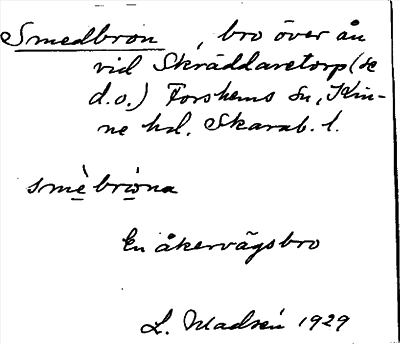 Smedbron, bro över ån
vid Skräddaretorp (se
d.o.) Forshems sn, Kin-
ne hd. Skarab. l.
smè̱ brὼ̱na
En åkervägsbro
L. Madsén 1929